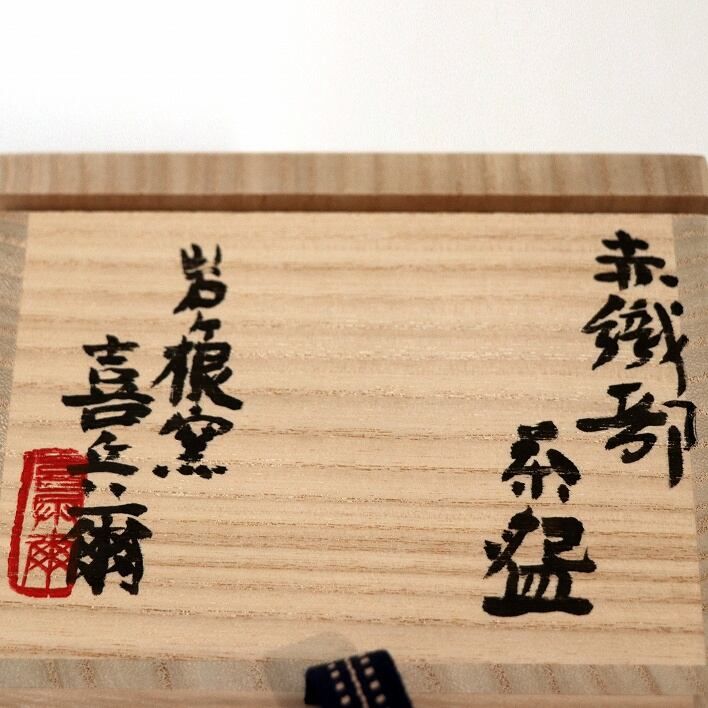 赤織部
茶盌
岩ヶ根窯
喜兵爾